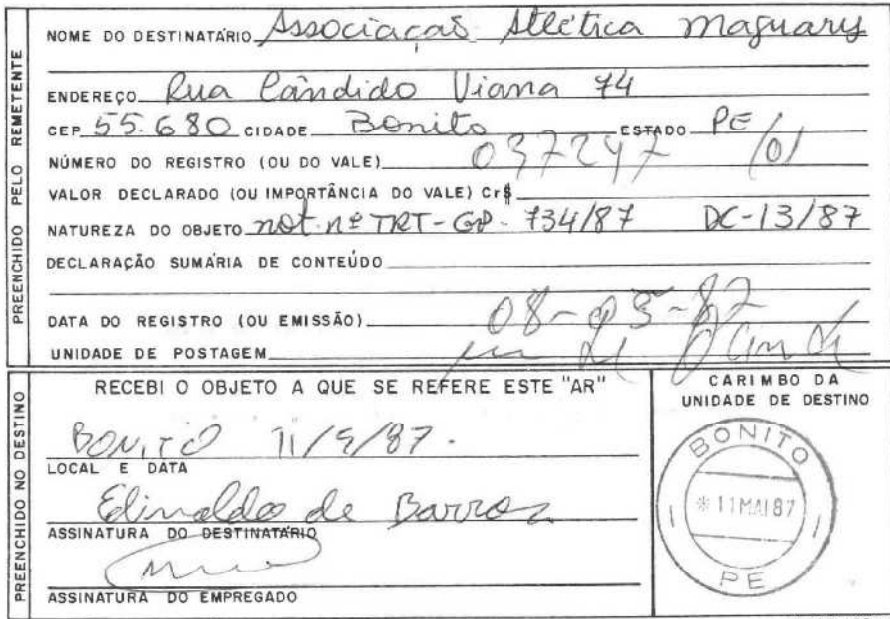 PREENCHIDO PELO REMETENTE
NOME DO DESTINATÁRIO Associaçaõ Atlética Maguary
ENDEREÇO Rua Cândido Viana 74
CEP 55.680 CIDADE Bonito ESTADO PE
NÚMERO DO REGISTRO (OU DO VALE) 037247 /01
VALOR DECLARADO (OU IMPORTÂNCIA DO VALE) Cr$
NATUREZA DO OBJETO not. nº TRT-GP- 734/87 DC-13/87
DECLARAÇÃO SUMÁRIA DE CONTEÚDO
DATA DO REGISTRO (OU EMISSÃO) 08-05-87
UNIDADE DE POSTAGEM
PREENCHIDO NO DESTINO
RECEBI O OBJETO A QUE SE REFERE ESTE "AR"
BONITO 11/5/87.
LOCAL E DATA
Edinaldo de Barros
ASSINATURA DO DESTINATÁRIO
ASSINATURA DO EMPREGADO
CARIMBO DA
UNIDADE DE DESTINO
BONITO
* 11 MAI 87
PE